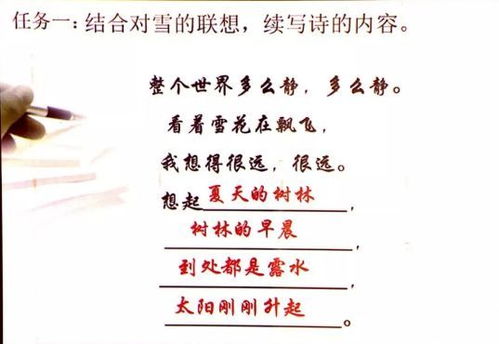 任务一：结合对雪的联想，续写诗的内容。
整个世界多么静，多么静。
看着雪花在飘飞，
我想得很远，很远。
想起夏天的树林，
树林的早晨，
到处都是露水，
太阳刚刚升起。